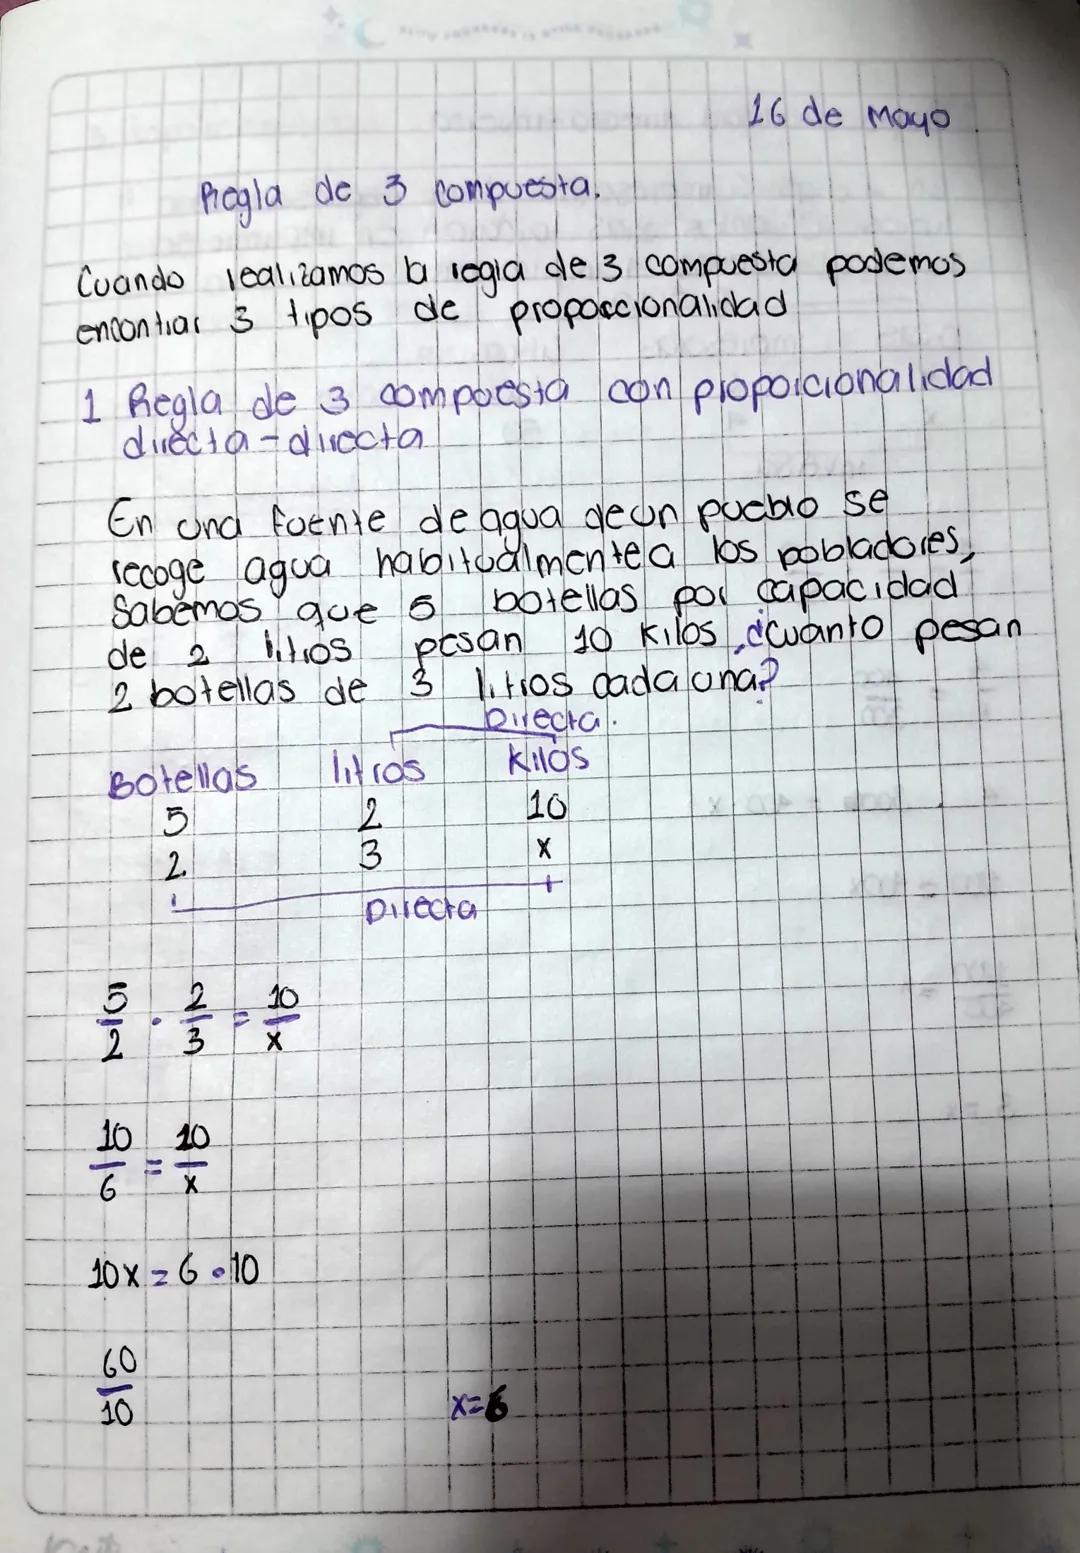 16 de Mayo
Regla de 3 compuesta.
Cuando realizamos la regla de 3 compuesta podemos
encontrar 3 tipos de proporccionalidad
1 Regla de 3 compuesta con proporcionalidad
directa-directa
En una fuente de agua de un pueblo se
recoge agua habitualmente a los pobladores,
Sabemos que 5 botellas por capacidad
de 2 litros pesan 10 Kilos ¿cuanto pesan
2 botellas de 3 litros cada una?
Directa.
Botellas litros Kilos
5 2 10
2 3 x
Directa
5/2 · 2/3 = 10/x
10/6 = 10/x
10x = 6 · 10
60/10 x=6